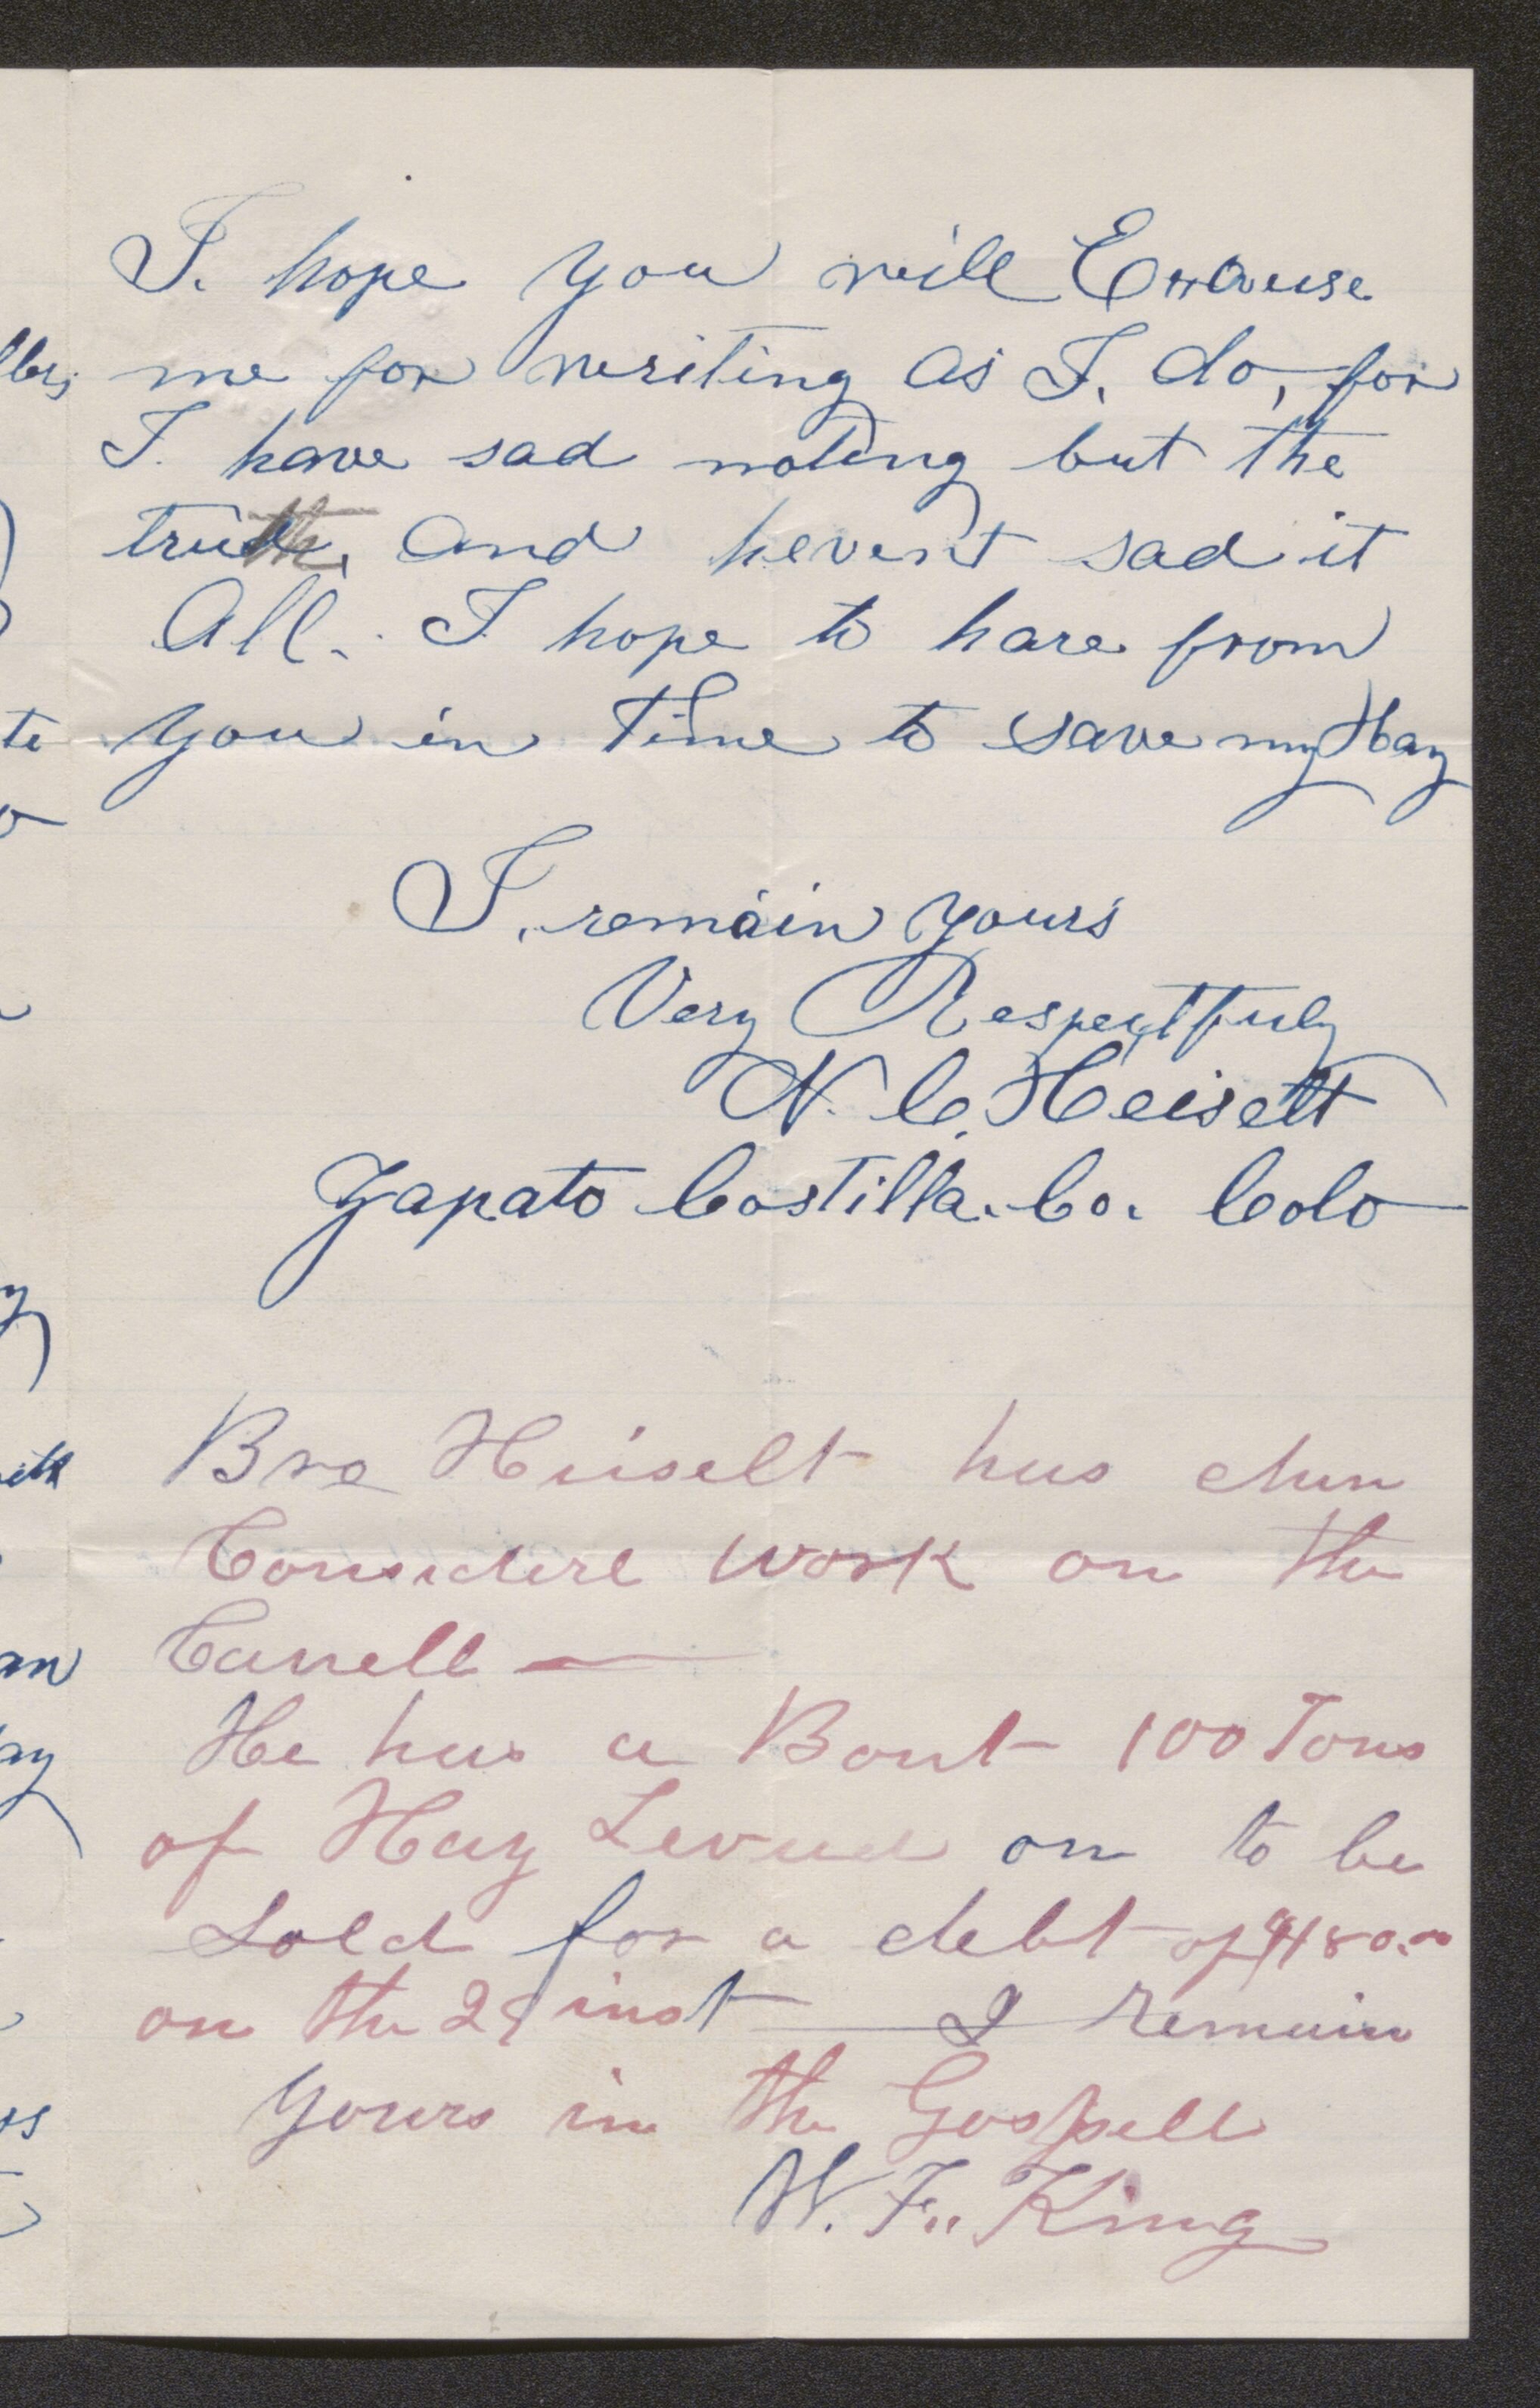 I. hope you will Excuse
me for writing as I. do, for
I. have sad noting but the
truth, and hevent sad it
All. I hope to hare from
you in Time to save my Hay
I. remain yours
Very Respectfuly
N. C. Heiselt
Zapato Costilla. Co. Colo
Bro Heiselt has dun
Considerl work on the
Canell —
He has a Bout 100 Tons
of Hay Levied on to be
Sold for a debt of
on the 29 inst — I Remain
Yours in the Gospell
W. F. King